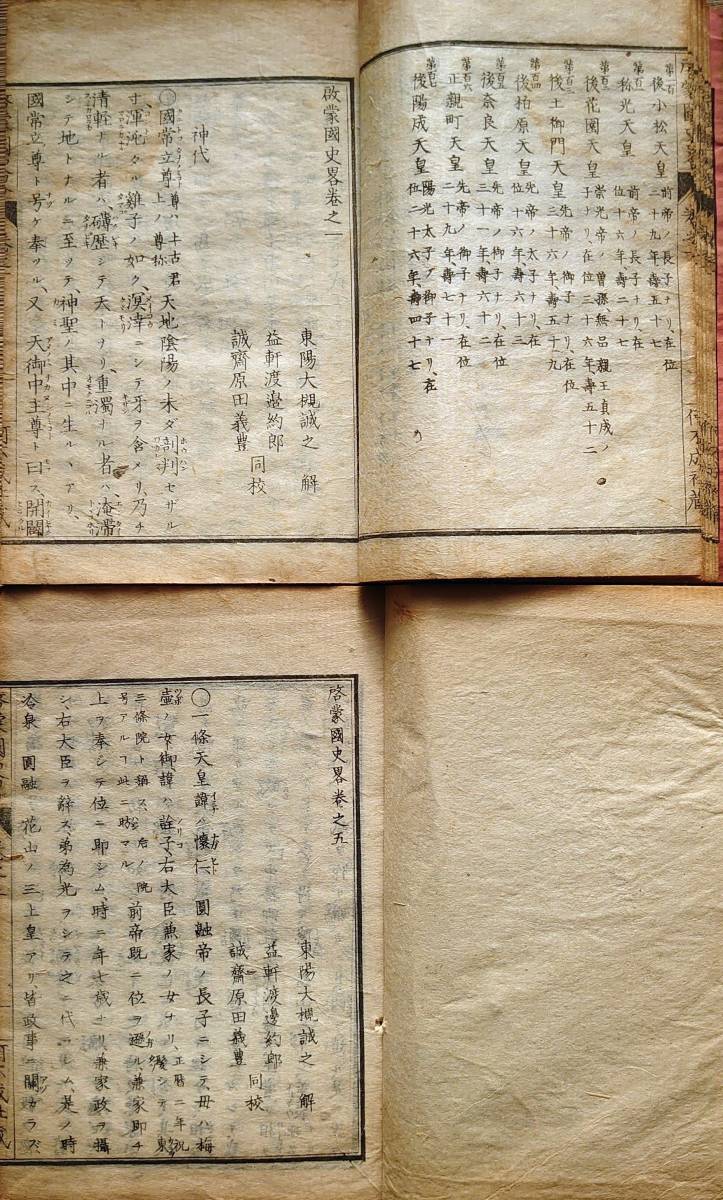 第百 後小松天皇 前帝ノ長子ナリ、在位二十九年、壽五十七
称光天皇 前帝ノ長子ナリ、在位十六年、壽二十七
後花園天皇 崇光帝ノ曾孫、無品親王貞成ノ子ナリ、在位三十六年、壽五十二
第百三 後土御門天皇 先帝ノ御子ナリ、在位三十六年、壽五十九
第百四 後柏原天皇 先帝ノ太子ナリ、在位十六年、壽六十三
後奈良天皇 先帝ノ御子ナリ、在位三十一年、壽六十二
第百六 正親町天皇 先帝ノ御子ナリ、在位二十九年、壽七十一
第百七 後陽成天皇 陽光太子ノ御子ナリ、在位二十六年、壽四十七
啟蒙國史畧卷之一
東陽大槻誠之 解
益軒渡邉約郎
誠齋原田義豊 同校
神代
〇國常立尊 尊ハ上古君上ノ尊称 天地陰陽ノ未ダ剖判セザル
寸、渾沌タル雞子ノ如ク、溟涬ニシテ牙ヲ含メリ、乃チ
清軽ナル者ハ、礴歴シテ天トナリ、重濁ナル者ハ、淹滞
シテ地トナルニ至ッテ、神聖ノ其中ニ生ルヽアリ、
國常立尊ト号ケ奉ツル、又天御中主尊ト曰ス、開闢
啓蒙國史畧卷之五
東陽大槻誠之 解
益軒渡邉約郎
誠齋原田義豊 同校
〇一條天皇諱ハ懐仁、圓融帝ノ長子ニシテ、母ハ梅
壺ノ女御諱ハ詮子、右大臣兼家ノ女ナリ、正暦二年祝髪シテ東
三條院ト稱ス、后ノ院号アルヿ此ニ昉マル 前帝既ニ位ヲ遜ル、兼家即チ
上ヲ奉シテ位ニ即シム、時ニ年七歳ナリ、兼家政ヲ攝
シ、右大臣ヲ辞ス、弟為光ヲシテ之ニ代ラシム、是ノ時
冷泉 圓融 花山ノ三上皇アリ、皆政事ニ關カラズ、